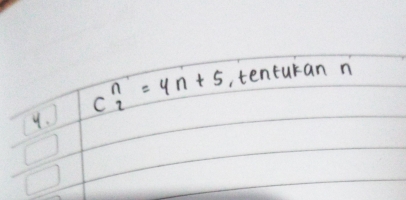 4. C₂ⁿ = 4n + 5, tentukan n